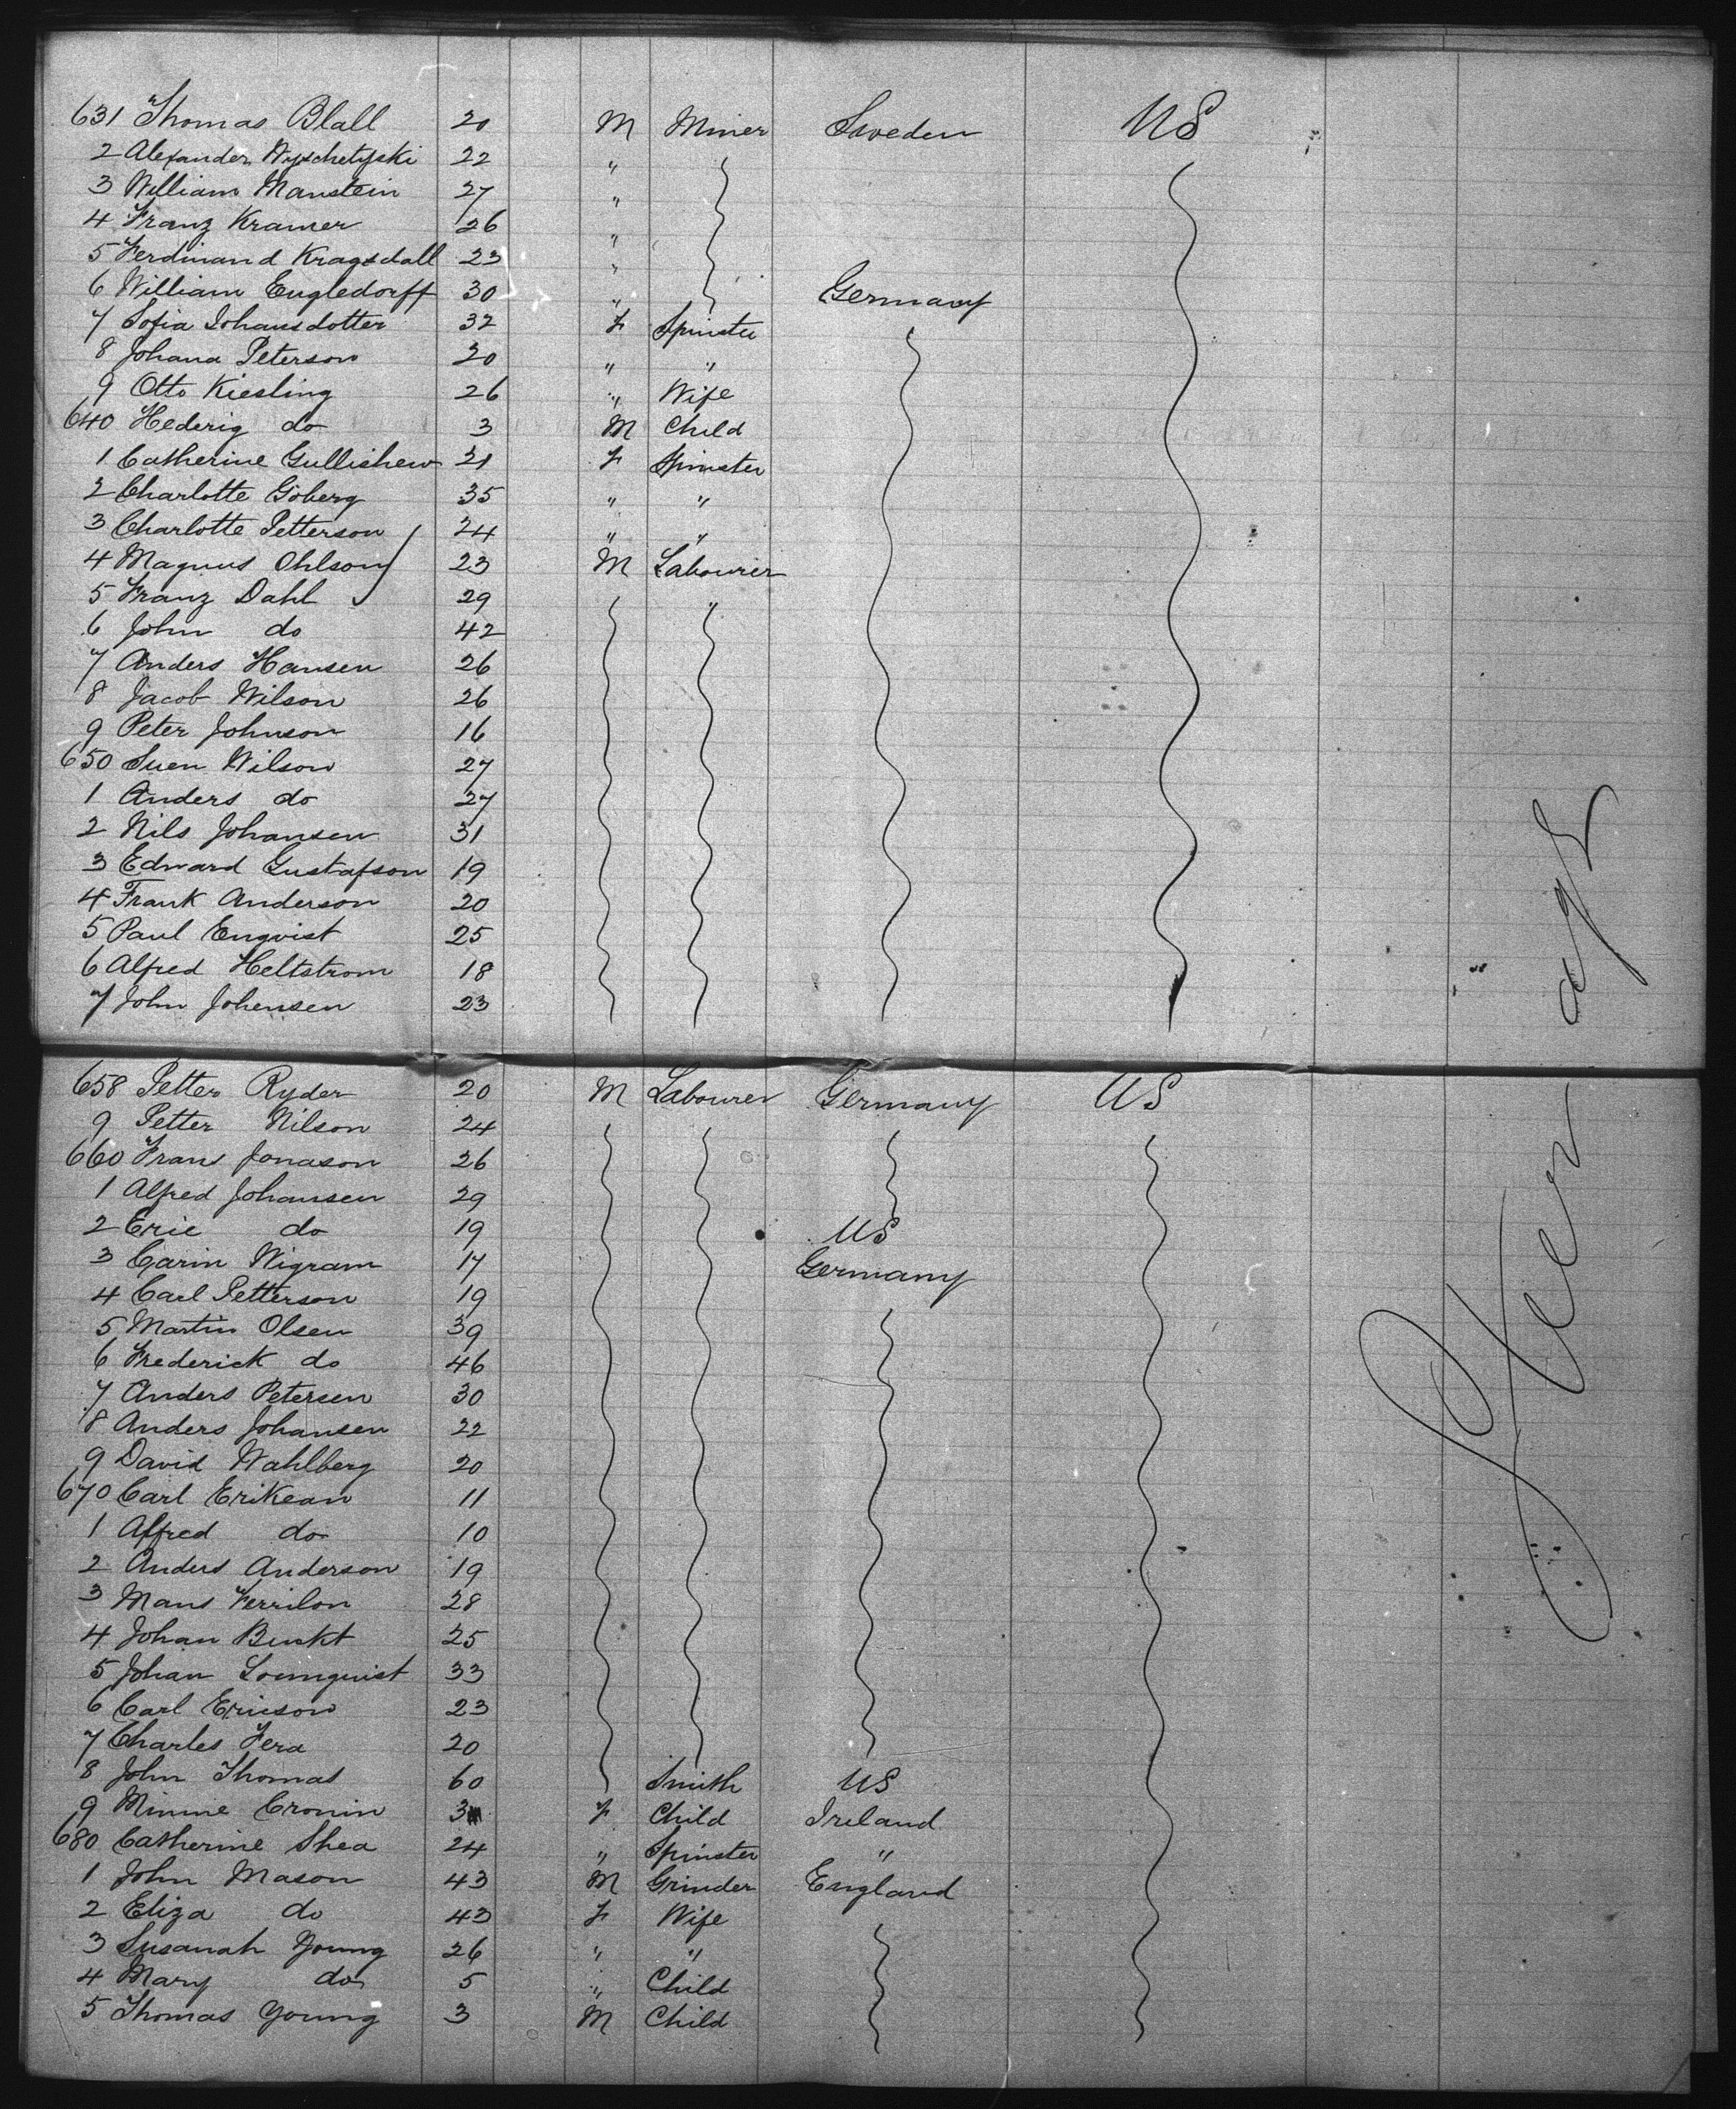 631 Thomas Blall 20 M Miner Sweden US
2 Alexander Wyschetyski 22 "
3 William Manstein 27 "
4 Franz Kramer 26 "
5 Ferdinand Kragsdall 23 "
6 William Engledorff 30 " Germany
7 Sofia Johansdotter 32 F Spinster
8 Johana Peterson 20 " "
9 Otto Kiesling 26 " Wife
640 Hederig do 3 M Child
1 Catherine Gullishew 21 F Spinster
2 Charlotte Goberg 35 " "
3 Charlotte Petterson 24 " "
4 Magnus Ohlson 23 M Labourer
5 Franz Dahl 29 "
6 John do 42
7 Anders Hansen 26
8 Jacob Wilson 26
9 Peter Johnson 16
650 Suen Wilson 27
1 Anders do 27
2 Nils Johansen 31
3 Edward Gustafson 19
4 Frank Anderson 20
5 Paul Enqvist 25
6 Alfred Heltstrom 18
7 John Johensen 23
658 Petter Ryder 20 M Labourer Germany US
9 Petter Nilson 24
660 Frans Jonason 26
1 Alfred Johansen 29
2 Eric do 19 US
3 Carin Wigram 17 Germany
4 Carl Petterson 19
5 Martin Olsen 39
6 Frederick do 46
7 Anders Petersen 30
8 Anders Johansen 22
9 David Wahlberg 20
670 Carl Erikean 11
1 Alfred do 10
2 Anders Anderson 19
3 Mans Ferrilon 28
4 Johan Buckt 25
5 Johan Lounquist 33
6 Carl Ericson 23
7 Charles Fera 20
8 John Thomas 60 Smith US
9 Minnie Cronin 3 F Child Ireland
680 Catherine Shea 24 " Spinster "
1 John Mason 43 M Grinder England
2 Eliza do 43 F Wife
3 Susanah Young 26 " "
4 Mary do 5 " Child
5 Thomas Young 3 M Child
Steer